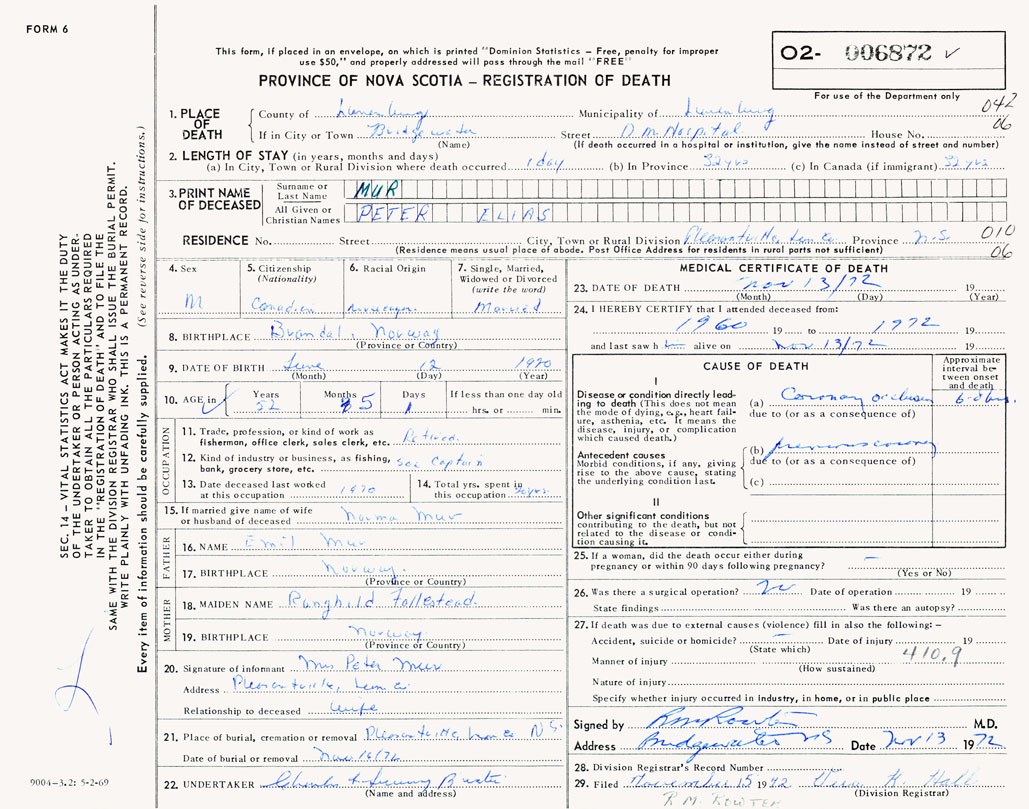 FORM 6
This form, if placed in an envelope, on which is printed "Dominion Statistics – Free, penalty for improper
use $50," and properly addressed will pass through the mail "FREE"
PROVINCE OF NOVA SCOTIA – REGISTRATION OF DEATH
O2- 006872 ✓
For use of the Department only
042
06
1. PLACE OF DEATH
County of Lunenburg Municipality of Lunenburg
If in City or Town Bridgewater Street D.M. Hospital House No.
(Name) (If death occurred in a hospital or institution, give the name instead of street and number)
2. LENGTH OF STAY (in years, months and days)
(a) In City, Town or Rural Division where death occurred 1 day (b) In Province 32 yrs (c) In Canada (if immigrant) 32 yrs
3. PRINT NAME OF DECEASED
Surname or Last Name MUR
All Given or Christian Names PETER ELIAS
RESIDENCE No. Street City, Town or Rural Division Pleasantville, Lun Co. Province N.S.
(Residence means usual place of abode. Post Office Address for residents in rural parts not sufficient)
010
06
4. Sex
M
5. Citizenship
(Nationality)
Canadian
6. Racial Origin
Norwegian
7. Single, Married,
Widowed or Divorced
(write the word)
Married
8. BIRTHPLACE Norway
(Province or Country)
9. DATE OF BIRTH June 12 1920
(Month) (Day) (Year)
10. AGE in ✓
Years
52
Months
5
Days
1
If less than one day
hrs. or min.
OCCUPATION
11. Trade, profession, or kind of work as
fisherman, office clerk, sales clerk, etc. Retired
12. Kind of industry or business, as fishing,
bank, grocery store, etc. Sea Captain
13. Date deceased last worked
at this occupation 1970
14. Total yrs. spent in
this occupation yrs
15. If married give name of wife
or husband of deceased Norma Mur
FATHER
16. NAME Emil Mur
17. BIRTHPLACE Norway
(Province or Country)
MOTHER
18. MAIDEN NAME Ranghild
19. BIRTHPLACE Norway
(Province or Country)
20. Signature of informant Mrs Peter Mur
Address Pleasantville, Lun Co
Relationship to deceased Wife
21. Place of burial, cremation or removal Pleasantville, Lun Co N.S.
Date of burial or removal Nov 16/72
22. UNDERTAKER
(Name and address)
MEDICAL CERTIFICATE OF DEATH
23. DATE OF DEATH Nov 13/72 19
(Month) (Day) (Year)
24. I HEREBY CERTIFY that I attended deceased from:
1960 19 to 1972 19
and last saw h alive on Nov 13/72 19
CAUSE OF DEATH
Approximate
interval be-
tween onset
and death
I
Disease or condition directly lead-
ing to death (This does not mean
the mode of dying, e.g., heart fail-
ure, asthenia, etc. It means the
disease, injury, or complication
which caused death.)
(a) Coronary occlusion
due to (or as a consequence of)
Antecedent causes
Morbid conditions, if any, giving
rise to the above cause, stating
the underlying condition last.
(b) previous coronary
due to (or as a consequence of)
(c)
II
Other significant conditions
contributing to the death, but not
related to the disease or condi-
tion causing it.
25. If a woman, did the death occur either during
pregnancy or within 90 days following pregnancy? –
(Yes or No)
26. Was there a surgical operation? No Date of operation 19
State findings Was there an autopsy?
27. If death was due to external causes (violence) fill in also the following: –
Accident, suicide or homicide? – Date of injury 19
(State which)
410.9
Manner of injury
(How sustained)
Nature of injury
Specify whether injury occurred in industry, in home, or in public place
Signed by M.D.
Address Bridgewater NS Date Nov 13 1972
28. Division Registrar's Record Number
29. Filed November 15 1972 Hall
(Division Registrar)
R.M. ROWTER
9004-3.2: 5-2-69
SEC. 14 – VITAL STATISTICS ACT MAKES IT THE DUTY
OF THE UNDERTAKER OR PERSON ACTING AS UNDER-
TAKER TO OBTAIN ALL THE PARTICULARS REQUIRED
IN THE "REGISTRATION OF DEATH" AND TO FILE THE
SAME WITH THE DIVISION REGISTRAR WHO SHALL ISSUE THE BURIAL PERMIT.
WRITE PLAINLY WITH UNFADING INK. THIS IS A PERMANENT RECORD.
Every item of information should be carefully supplied. (See reverse side for instructions.)